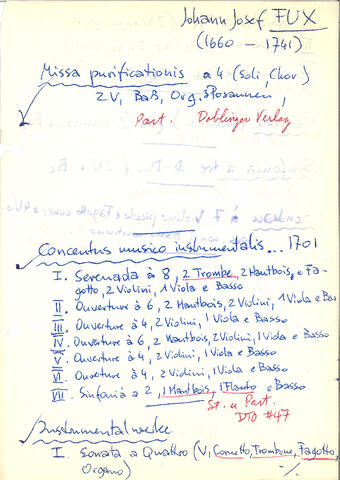 Johann Josef FUX
(1660 – 1741)
Missa purificationis a 4 (Soli, Chor)
2 V, Baß, Org. 3 Posaunen,
Part. Doblinger Verlag
Concentus musico instrumentalis... 1701
I. Serenada à 8, 2 Trombe, 2 Hautbois, e Fa-
gotto, 2 Violini, 1 Viola e Basso
II. Ouverture à 6, 2 Hautbois, 2 Violini, 1 Viola e Bas
III. Ouverture à 4, 2 Violini, 1 Viola e Basso
IV. Ouverture à 6, 2 Hautbois, 2 Violini, 1 Viola e Basso
V. Ouverture à 4, 2 Violini, 1 Viola e Basso
VI. Ouverture à 4, 2 Violini, 1 Viola e Basso
VII. Sinfonia a 2, 1 Hautbois, 1 Flauto e Basso
St. u Part.
DTÖ #47
Instrumentalwerke
I. Sonata a Quattro (V, Cornetto, Trombone, Fagotto,
Organo) -/.